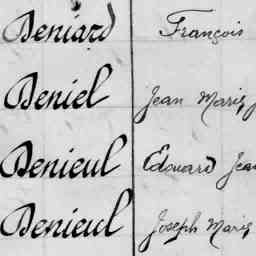 Deniard François
Deniel Jean Marie
Denieul Edouard Jea
Denieul Joseph Marie